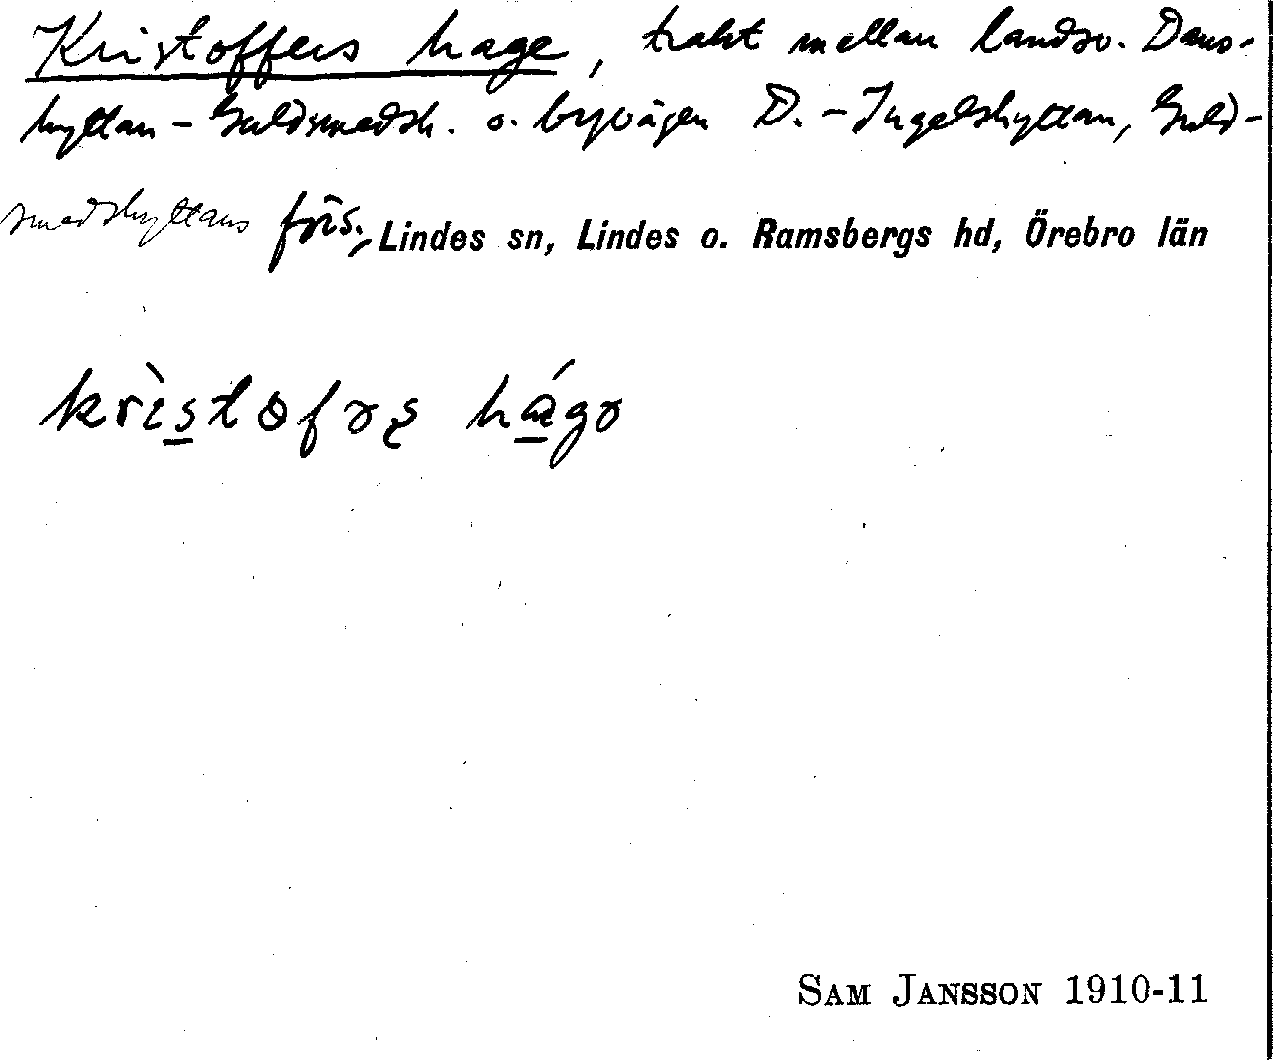 Kristoffers hage, trakt mellan landsv. Dans-
hyttan - Guldsmedsh. o. byvägen D. - Ingelshyttan, Guld-
smedshyttans förs., Lindes sn, Lindes o. Ramsbergs hd, Örebro län
SAM JANSSON 1910-11